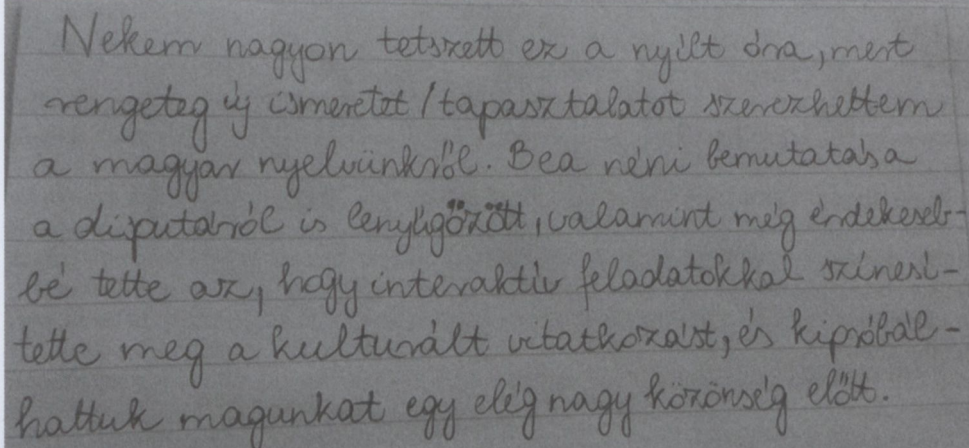 Nekem nagyon tetszett ez a nyílt óra, mert
rengeteg új ismeretet/tapasztalatot szerezhettem
a magyar nyelvünkről. Bea néni bemutatása
a disputáról is lenyűgözött, valamint még érdekeseb-
bé tette az, hogy interaktív feladatokkal színesí-
tette meg a kulturált vitatkozást, és kipróbál-
hattuk magunkat egy elég nagy közönség előtt.